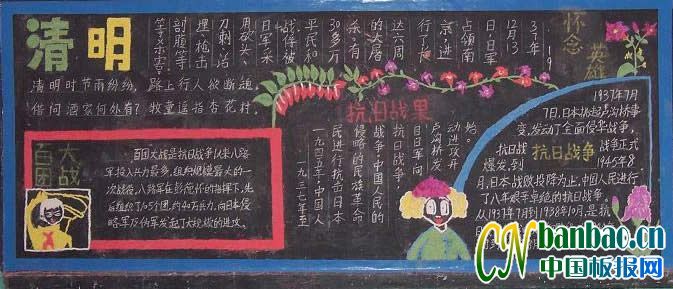 清明
清明时节雨纷纷,路上行人欲断魂,
借问酒家何处有?牧童遥指杏花村.
19
37年
12月13
日,日军
占领南
京,进
行了
达六周
的大屠
杀,有
30多万
平民和
战俘被
日军采
用砍头、
刀刺、活
埋、枪击
剖腹等
等杀害.
怀念
英雄
百团
大战
百团大战是抗日战争以来八路
军投入兵力最多,组织规模最大的一
次战役,八路军在彭德怀的指挥下,先
后组织了105个团,约40万兵力,向日本侵
略军及伪军发起了大规模的进攻。
抗日战果
一九三七年至
一九四五年,中国人
民进行抗击日本
侵略的民族革命
战争,中国人民的
抗日战争,
自日军向
卢沟桥发
动进攻开
始。
1937年7月
7日,日本挑起卢沟桥事
变,发动了全面侵华战争,
抗日战 抗日战争 战争正式
爆发,到 1945年8
月,日本战败投降为止,中国人民进行
了八年艰辛卓绝的抗日战争,
从1937年7月到1938年10月,是抗
CNbanbao.cn
中国板报网